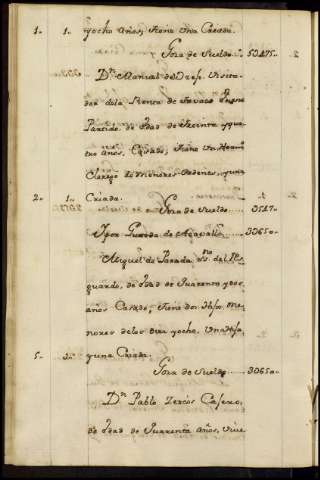 1.. 1.. yocho años; tiene Una Criada.
Goza de Sueldo.. 5U475..
Dn. Manuel de Visita-
dor dela Renta de Tavaco deeste
Partido, de edad de treinta yqua-
tro años, Casado, tiene un Herma.
Clerigo de Menores ordenes, yuna
2.. 1.. Criada.
Goza de Sueldo.. 3U517..
Por Guarda de Acavallo.. 3U650..
Miguel de Posada del Res-
guardo, de edad de Quarenta ydos
años Casado; tiene dos Hijos Me-
nores delos diez yocho, Una Hija
5.. 3.. yuna Criada.
Goza de Sueldo.. 3U650..
Dn. Pablo Casero,
de edad de Quarenta años, Vive